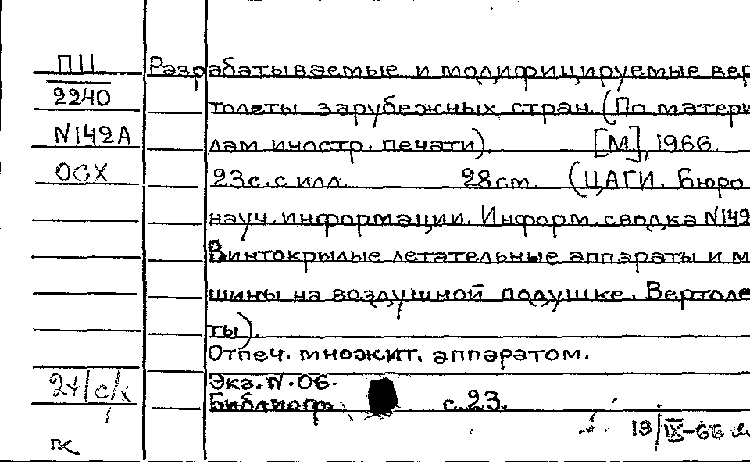 ПЦ Разрабатываемые и модифицируемые вер
2240 толеты зарубежных стран. (По матери
N142А лам иностр. печати). [М], 1966.
ОСХ 23с. с илл. 28см. (ЦАГИ. Бюро
науч. информации. Информ. сводка N142
Винтокрылые летательные аппараты и м
шины на воздушной подушке. Вертоле
ты).
Отпеч. множит. аппаратом.
Экз. N-06.
Библиогр. с. 23.